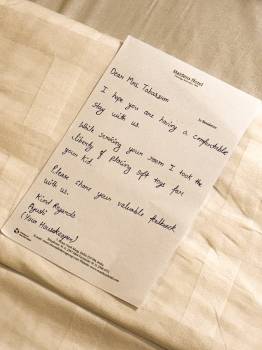 Dear Mrs. Tabassum
I hope you are having a comfortable
stay with us.
While servicing your room I took the
liberty of placing soft toys for
your kid.
Please share your valuable feedback
with us.
Kind Regards
(Your Housekeeper)